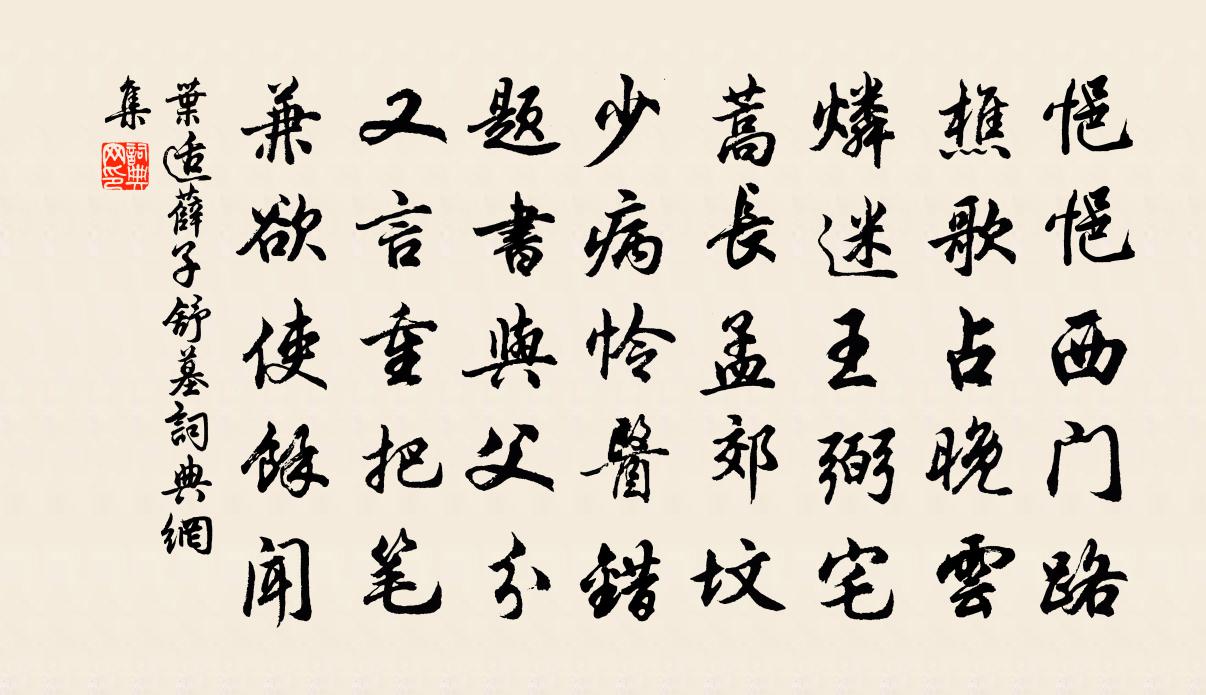 悒悒西门路
樵歌占晚雲
燐迷王弼宅
蒿長孟郊坟
少病怜醫錯
題書與父分
又言重把笔
兼欲使餘闻
葉适薛子舒墓詞典網
集
詞典網印